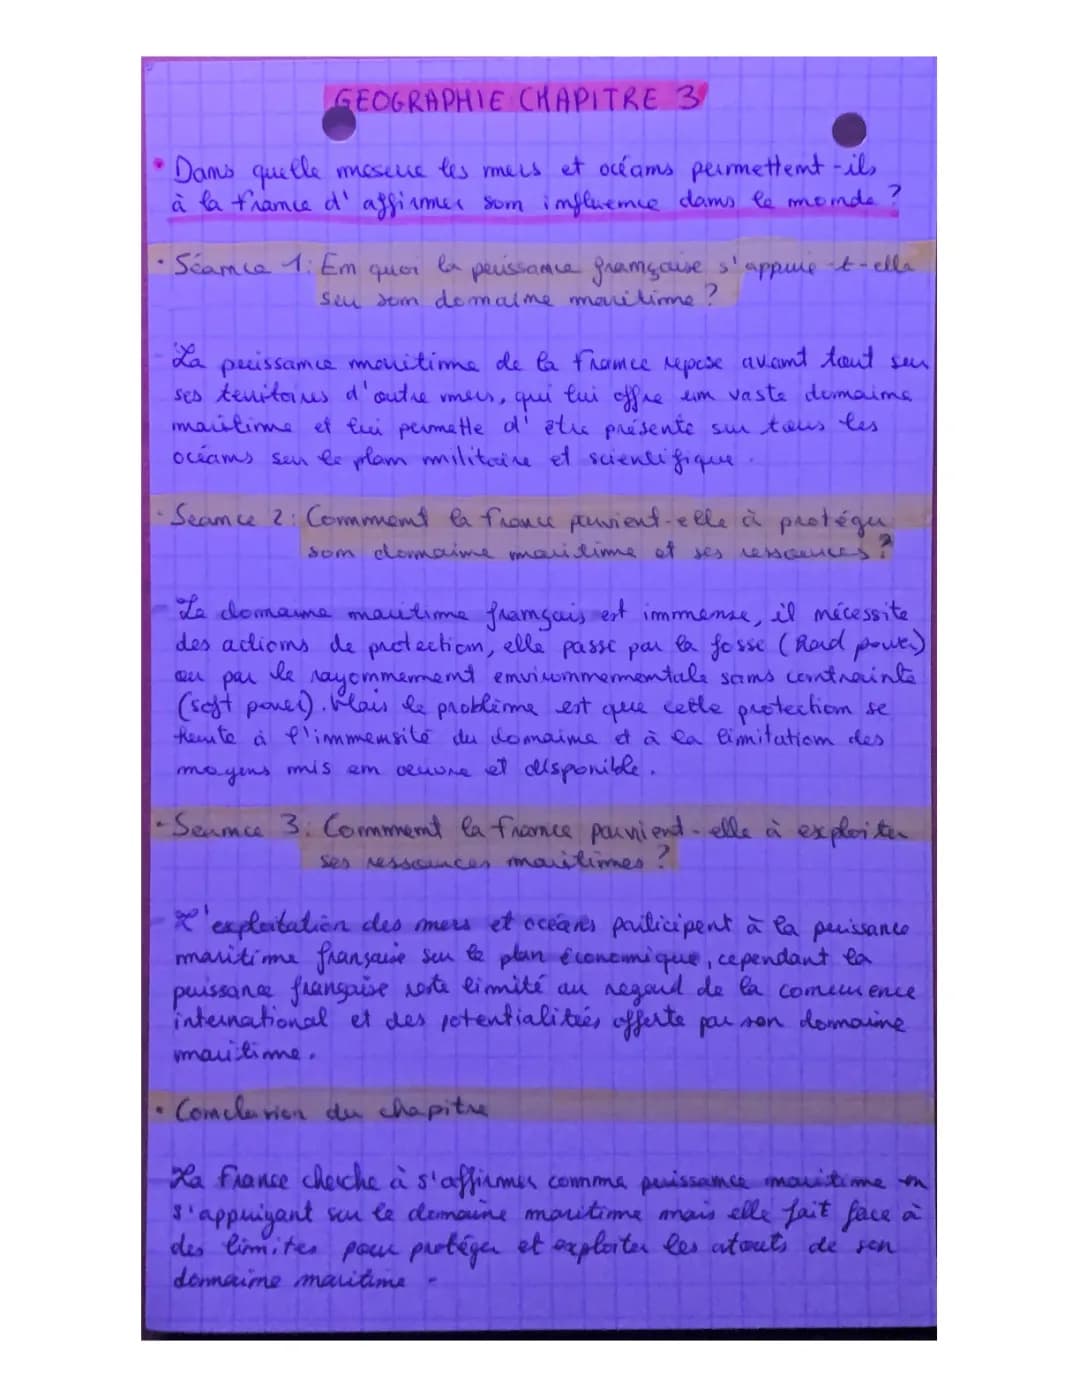 GEOGRAPHIE CHAPITRE 3
• Dans quelle mesure les mers et océans permettent-ils
à la France d'affirmer son influence dans le monde ?
• Séance 1 : En quoi la puissance française s'appuie-t-elle
sur son domaine maritime ?
La puissance maritime de la France repose avant tout sur
ses territoires d'outre mers, qui lui offre un vaste domaine
maritime et lui permette d'être présente sur tous les
océans sur le plan militaire et scientifique.
• Seance 2 : Comment la France parvient-elle à protéger
son domaine maritime et ses ressources ?
Le domaine maritime français est immense, il nécessite
des actions de protection, elle passe par la fosse (Hard power)
ou par le rayonnement environnementale sans contrainte
(soft power). Mais le problème est que cette protection se
heurte à l'immensité du domaine et à la limitation des
moyens mis en œuvre et disponible.
• Seance 3 : Comment la France parvient-elle à exploiter
ses ressources maritimes ?
L'exploitation des mers et océans participent à la puissance
maritime française sur le plan économique, cependant la
puissance française reste limité au regard de la concurrence
international et des potentialités offerte par son domaine
maritime.
• Conclusion du chapitre
La France cherche à s'affirmer comme puissance maritime en
s'appuyant sur le domaine maritime mais elle fait face à
des limites pour protéger et exploiter les atouts de son
domaine maritime.